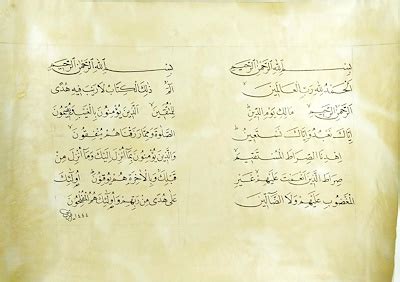 بسم الله الرحمن الرحيم
الحمد لله رب العالمين
الرحمن الرحيم مالك يوم الدين
إياك نعبد وإياك نستعين
اهدنا الصراط المستقيم
صراط الذين أنعمت عليهم غير
المغضوب عليهم ولا الضالين
بسم الله الرحمن الرحيم
الم ذلك الكتاب لا ريب فيه هدى
للمتقين الذين يؤمنون بالغيب ويقيمون
الصلوة ومما رزقناهم ينفقون
والذين يؤمنون بما أنزل إليك وما أنزل من
قبلك وبالآخرة هم يوقنون أولئك
على هدى من ربهم وأولئك هم المفلحون